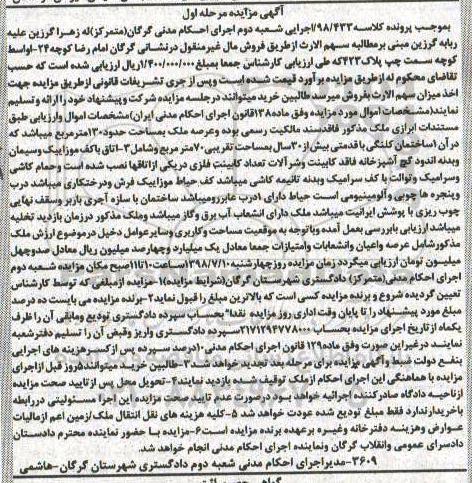 آگهی مزایده مرحله اول
بموجب پرونده کلاسه ۹۸/۴۳۳/اجرایی شعبه دوم اجرای احکام مدنی گرگان(متمرکز)له زهرا گرزین علیه
ربابه گرزین مبنی برمطالبه سهم الارث ازطریق فروش مال غیرمنقول درنشانی گرگان امام رضا کوچه ۲۴-اواسط
کوچه سمت چپ پلاک ۴۲۳که طی ارزیابی کارشناس جمعا بمبلغ ۱/۴۰۰/۰۰۰/۰۰۰ریال ارزیابی شده است که حسب
تقاضای محکوم له ازطریق مزایده برآورد قیمت شده است وپس از جری تشریفات قانونی ازطریق مزایده جهت
اخذ میزان سهم الارث بفروش میرسد طالبین خرید میتوانند درجلسه مزایده شرکت وپیشنهاد خود را ارائه وتسلیم
نمایند(مشخصات اموال مورد مزایده وفق ماده۱۳۸قانون اجرای احکام مدنی ایران)مشخصات اموال وارزیابی طبق
مستندات ابرازی ملک مذکور فاقدسند مالکیت رسمی بوده وعرصه ملک بمساحت حدود۱۳۰مترمربع میباشد که
در آن ۱ساختمان کلنگی با قدمتی بیش از۳۰سال بمساحت تقریبی ۷۰متر مربع وشامل۳-اتاق باکف موزاییک وسیمان
وبدنه اندود گچ آشپزخانه فاقد کابینت وشرآلات تعداد کابینت فلزی دریکی ازاتاقها نصب شده است وحمام کاشی
وسرامیک وتوالت با کف سرامیک وبدنه تانیمه کاشی میباشد کف حیاط موزاییک فرش ودرختکاری میباشد درب
وپنجره ها چوبی وآلومینیومی است حیاط دارای ۱درب عابررومیباشد ساختمان با سازه آجری باربر وسقف نهایی
چوب ریزی با پوشش ایرانیت میباشد ملک دارای انشعاب آب برق وگاز میباشد وملک مذکور درزمان بازدید تخلیه
میباشد ارزیابی بابررسی بعمل آمده وباتوجه به موقعیت مساحت وکاربری وسایرعوامل دخیل درموضوع ارزش ملک
مذکورشامل عرصه واعیان وانشعابات وامتیازات جمعا معادل یک میلیارد وچهارصد میلیون ریال معادل صدوچهل
میلیون تومان ارزیابی میگردد زمان مزایده روزچهارشنبه۱۳۹۸/۷/۱۰ساعت۱۰تا۱۱صبح مکان مزایده شعبه دوم
اجرای احکام مدنی(متمرکز)دادگستری شهرستان گرگان(شرایط مزایده)۱-مزایده ازمبلغی که توسط کارشناس
تعیین گردیده شروع و برنده مزایده کسی است که بالاترین مبلغ را قبول نماید۲-برنده مزایده می بایست ده درصد
مبلغ مورد پیشنهاد را تا پایان وقت اداری روز مزایده نقدا" بحساب سپرده دادگستری تودیع ومابقی آن را ظرف
یکماه ازتاریخ اجرای مزایده بحساب۲۱۷۱۲۹۴۷۷۸۰۰۰سپرده دادگستری واریز وقبض آن را تسلیم دفترشعبه
نمایند درغیراین صورت وفق ماده۱۲۹ قانون اجرای احکام مدنی ۱۰درصد سپرده پس ازکسرهزینه های اجرایی
بنفع دولت ضبط وآگهی مزایده برای مرحله بعد تجدید خواهد شد۳-طالبین خرید میتوانند۵روز قبل ازاجرای
مزایده با هماهنگی این اجرای احکام ازملک توقیف شده بازدید نمایند۴-تحویل محل پس از تایید صحت مزایده
ازناحیه دادگاه صادرکننده اجرائیه خواهد بود درصورت عدم تایید صحت مزایده این اجرا مسئولیتی دررابطه
باخریدارندارد فقط مبلغ تودیع شده عودت خواهد شد ۵-کلیه هزینه های نقل انتقال ملک/زمین اعم ازمالیات
عوارض وهزینه دفترخانه وغیره برعهده برنده مزایده است۶-مزایده با حضور نماینده محترم دادستان
دادسرای عمومی وانقلاب گرگان ونماینده اجرای احکام مدنی انجام خواهد شد.
۳۶۰۹-مدیراجرای احکام مدنی شعبه دوم دادگستری شهرستان گرگان-هاشمی